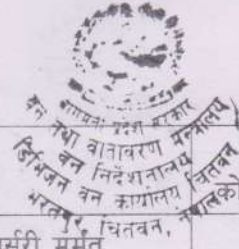 बागमती प्रदेश सरकार
वन तथा वातावरण मन्त्रालय
वन निर्देशनालय
डिभिजन वन कार्यालय चितवन
भरतपुर, चितवन,
नर्सरी मर्मत